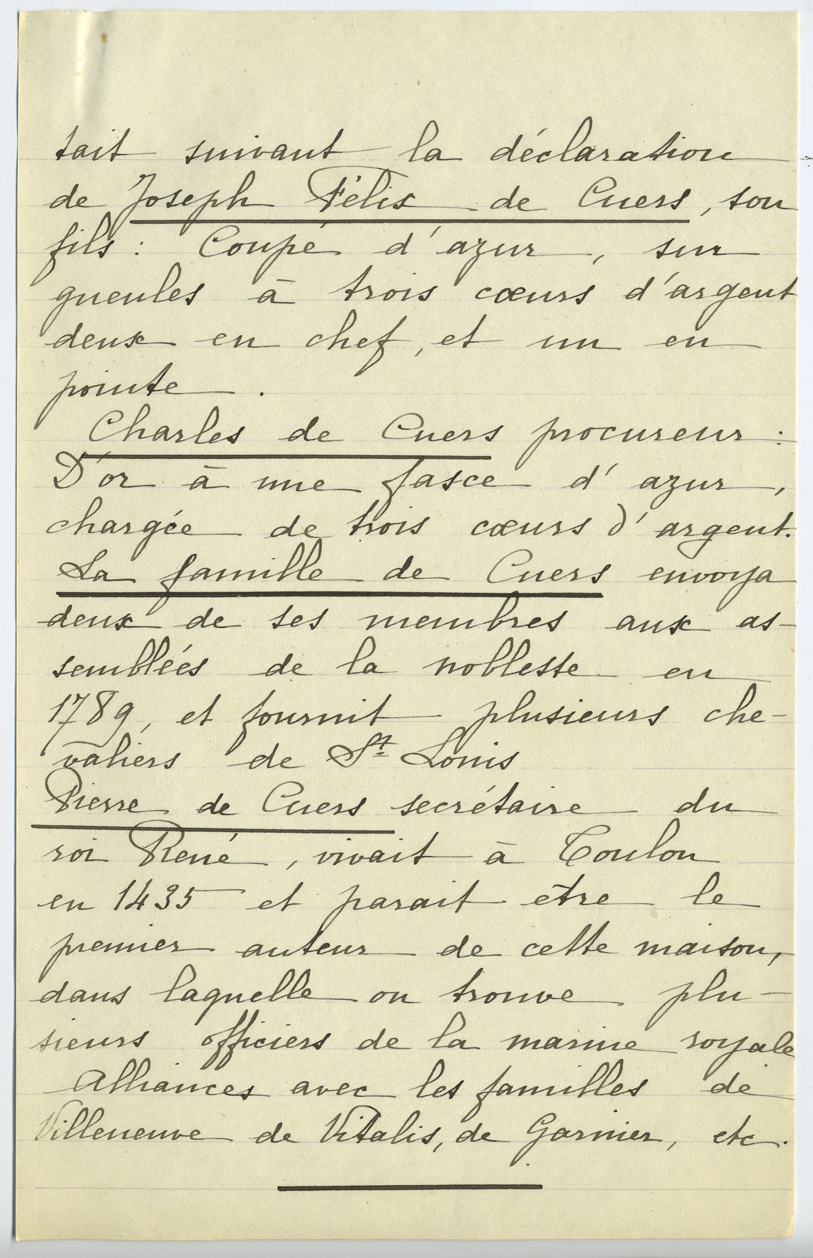 tait suivant la déclaration
de Joseph Félix de Cuers, son
fils : Coupé d'azur, sur
gueules à trois cœurs d'argent
deux en chef, et un en
pointe.
Charles de Cuers procureur :
D'or à une fasce d'azur,
chargée de trois cœurs d'argent.
La famille de Cuers envoya
deux de ses membres aux as-
semblées de la noblesse en
1789, et fournit plusieurs che-
valiers de St Louis
Pierre de Cuers secrétaire du
roi René, vivait à Toulon
en 1435 et parait etre le
premier auteur de cette maison,
dans laquelle on trouve plu-
sieurs officiers de la marine royale
Alliances avec les familles de
Villeneuve de Vitalis, de Garnier, etc.